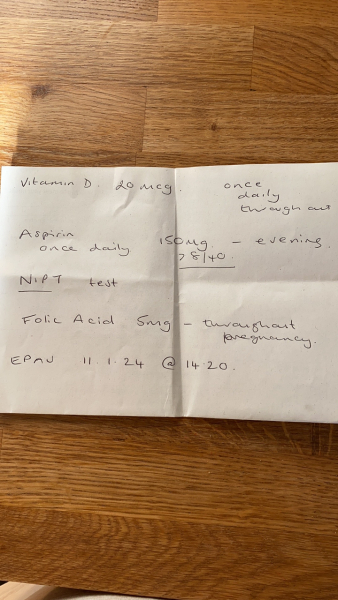 Vitamin D. 20 mcg. once
daily
throughout
Aspirin 150mg. - evening.
once daily >8/40.
NIPT test
Folic Acid 5mg - throughout
pregnancy.
EPAU 11.1.24 @ 14.20.